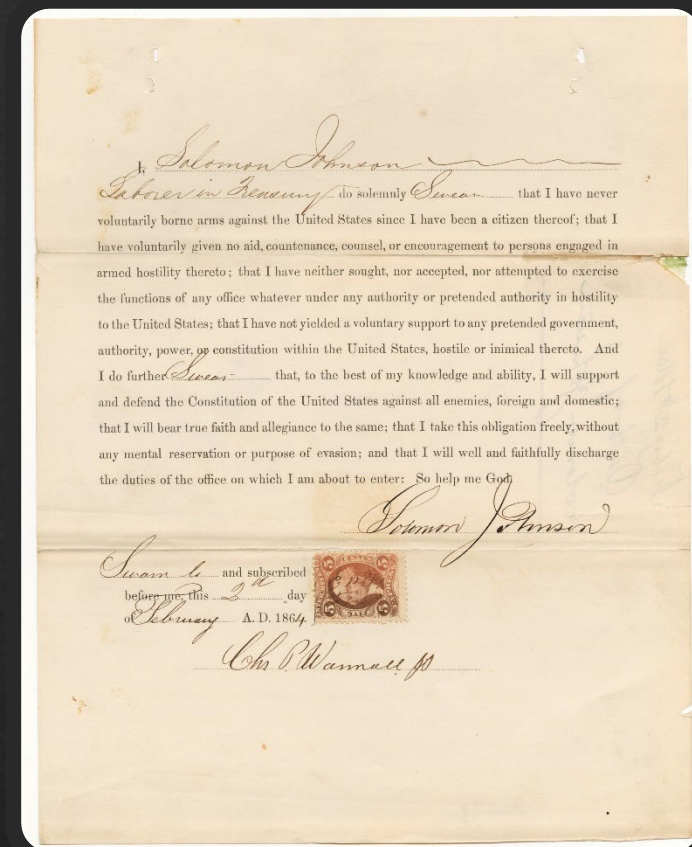 I, Solomon Johnson
Laborer in Treasury do solemnly Swear that I have never
voluntarily borne arms against the United States since I have been a citizen thereof; that I
have voluntarily given no aid, countenance, counsel, or encouragement to persons engaged in
armed hostility thereto; that I have neither sought, nor accepted, nor attempted to exercise
the functions of any office whatever under any authority or pretended authority in hostility
to the United States; that I have not yielded a voluntary support to any pretended government,
authority, power, or constitution within the United States, hostile or inimical thereto. And
I do further Swear that, to the best of my knowledge and ability, I will support
and defend the Constitution of the United States against all enemies, foreign and domestic;
that I will bear true faith and allegiance to the same; that I take this obligation freely, without
any mental reservation or purpose of evasion; and that I will well and faithfully discharge
the duties of the office on which I am about to enter: So help me God.
Solomon Johnson
Sworn to and subscribed
before me, this 2d day
of February A. D. 1864.
5 CENTS 5
5 5
Chs P. Wannall JP